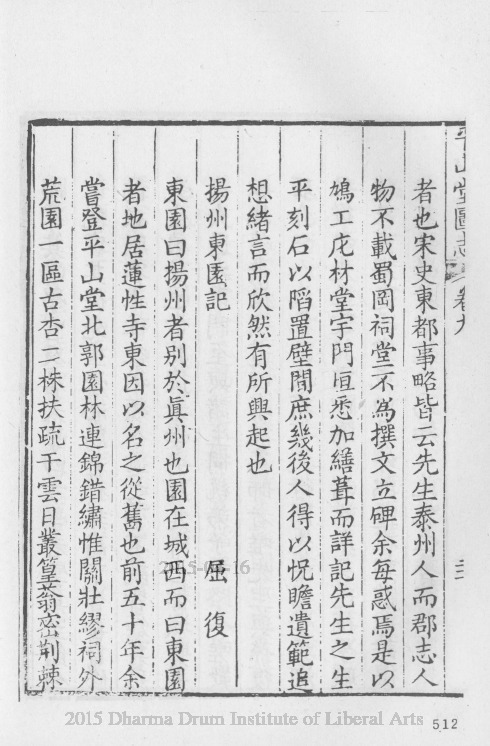 平山堂圖志 卷九
者也宋史東都事略皆云先生泰州人而郡志人
物不載蜀岡祠堂亦不為撰文立碑余每惑焉是以
鳩工庀材堂宇門垣悉加繕葺而詳記先生之生
平刻石以陷置壁間庶幾後人得以怳瞻遺範追
想緒言而欣然有所興起也
揚州東園記
屈復
東園曰揚州者別於眞州也園在城西而曰東園
者地居蓮性寺東因以名之從舊也前五十年余
嘗登平山堂北郭園林連錦錯繡惟關壯繆祠外
荒園一區古杏二株扶疏干雲日叢篁蓊密荆棘
2015 Dharma Drum Institute of Liberal Arts
512